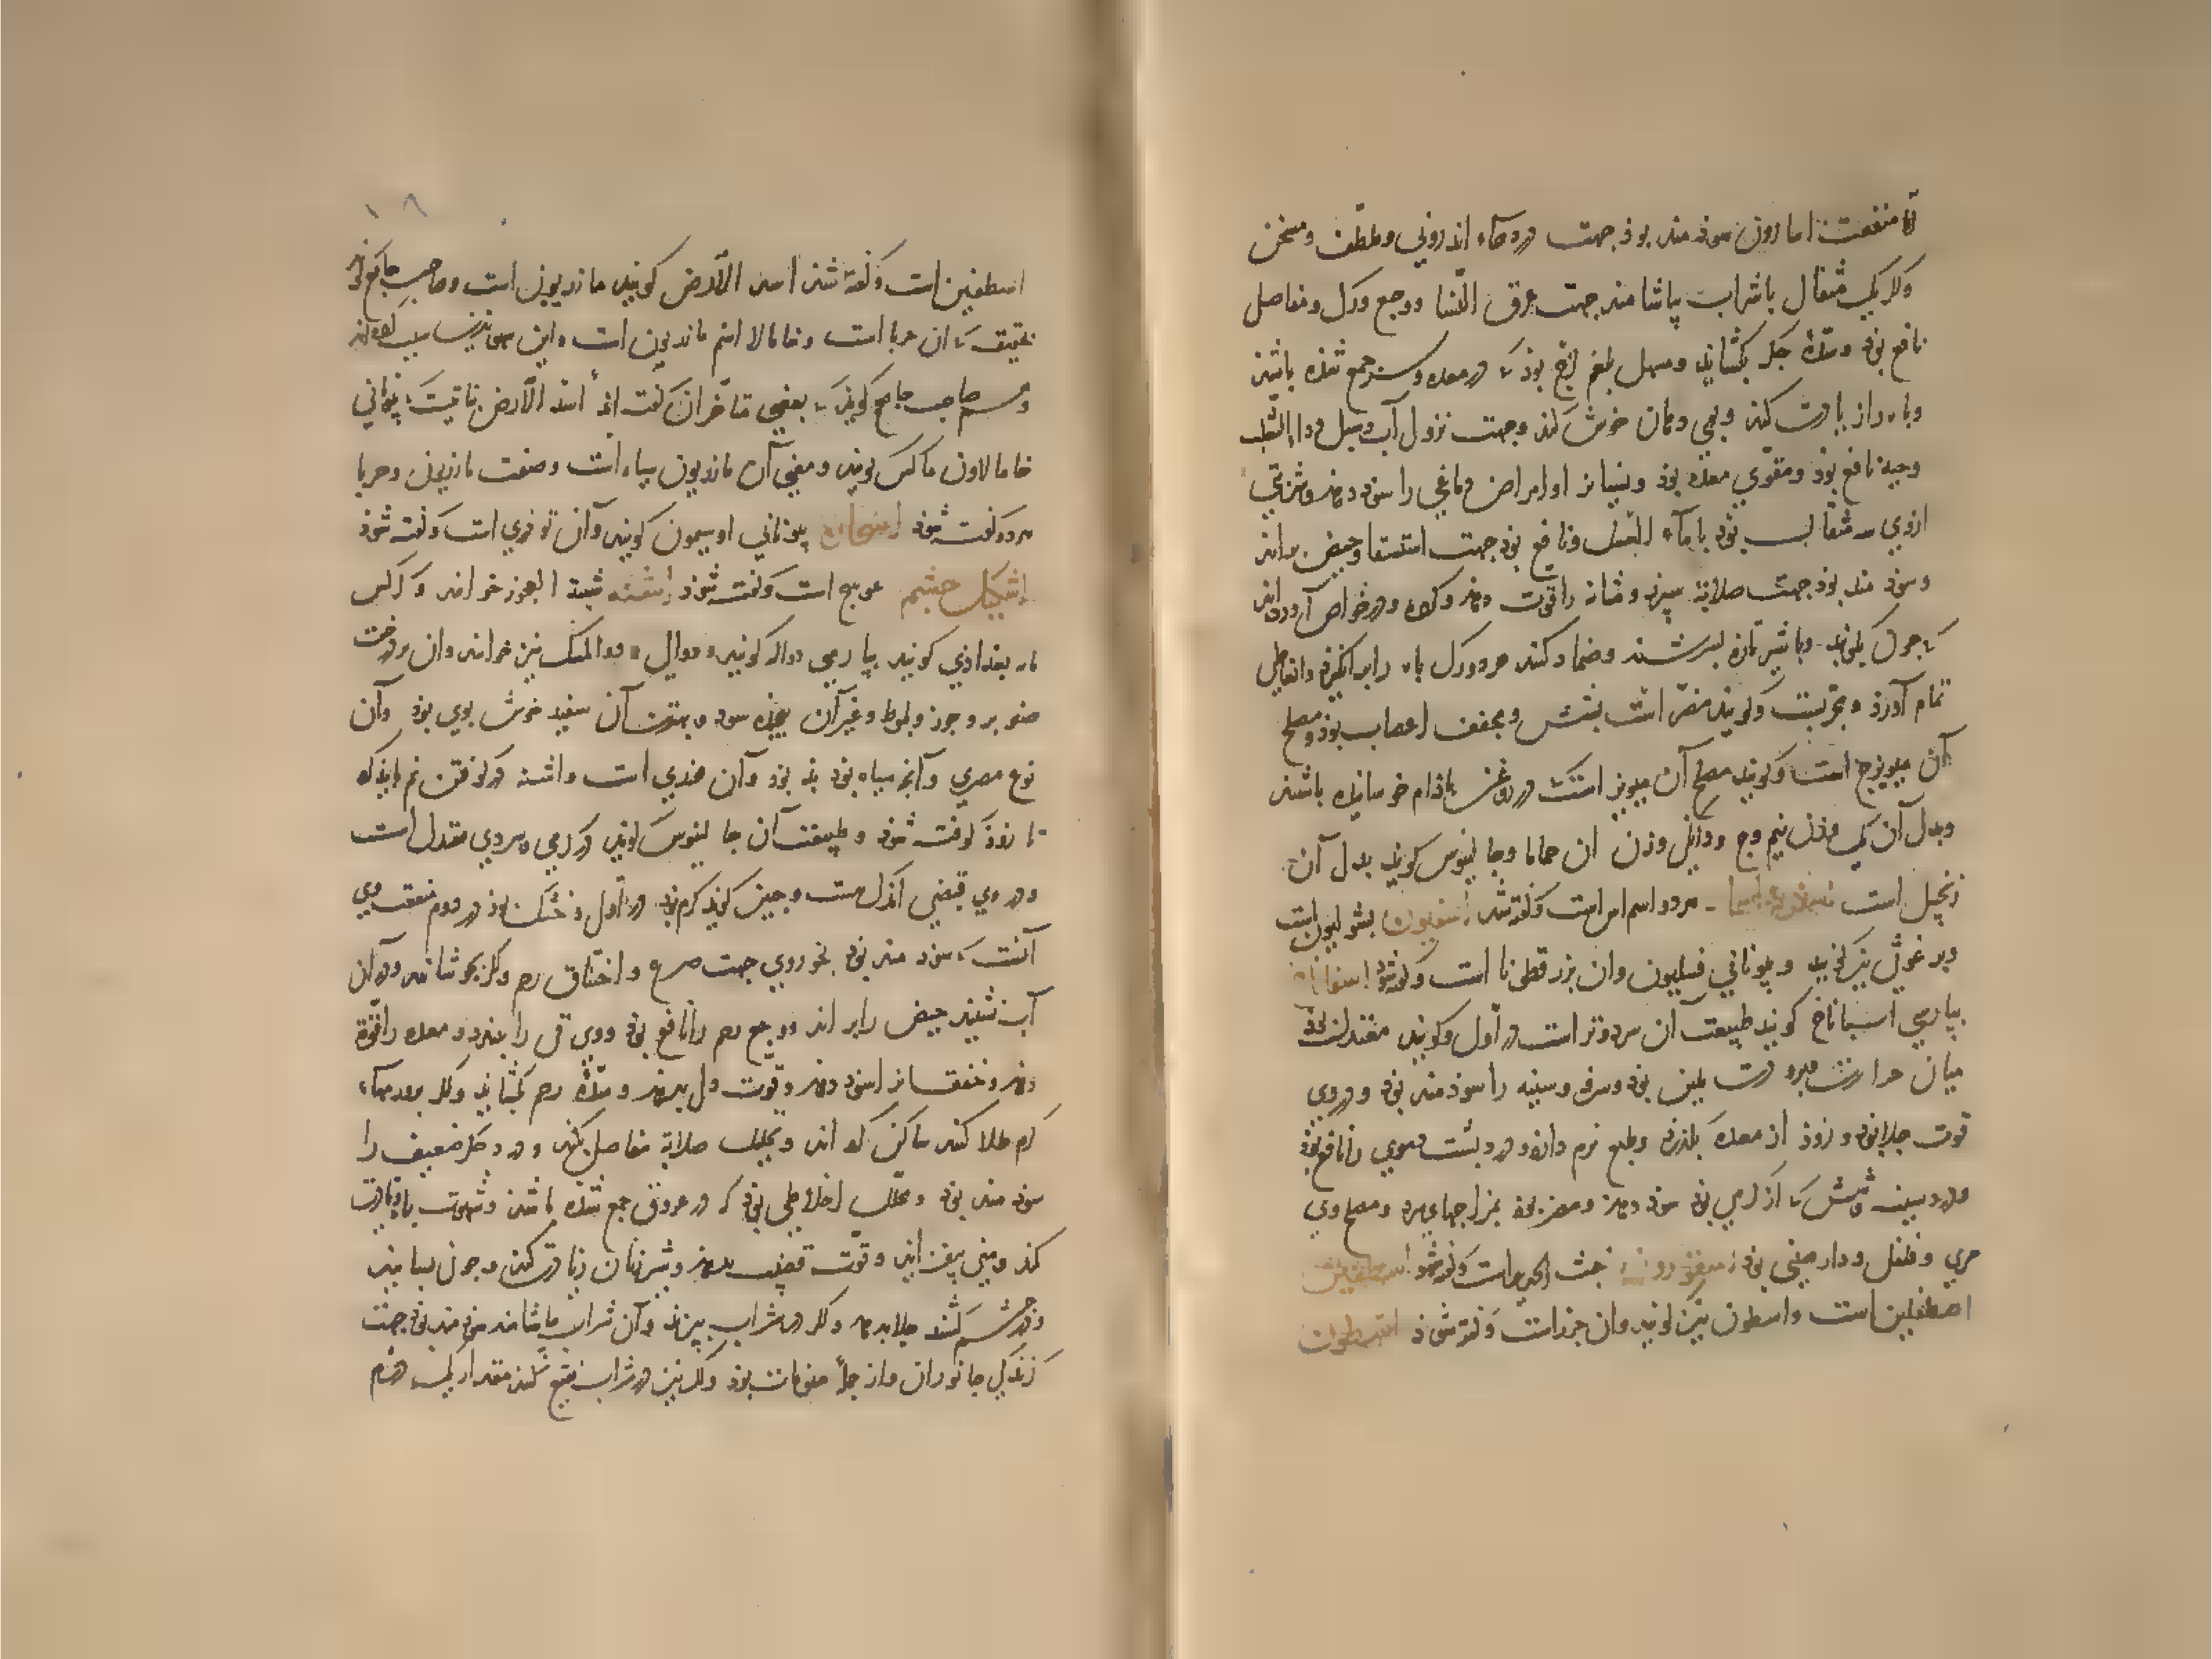 منفعت اسارون سودمند بود جهت دردهاء اندرونی و ملطف و مسخن
و اگر یک مثقال با شراب بیاشامند جهت عرق النسا و وجع ورک و مفاصل
نافع بود و سدۀ جگر بگشاید و مسهل بلغم لزج بود که در معده و جمع شده باشد
و باه را زیادت کند و بوی دهان خوش کند و جهت نزول آب و سبل و داء الثعلب
و حیه نافع بود و مقوی معده بود و نسیان و امراض دماغی را سود دهد و شربتی
از وی سه مثقال بود با ماء العسل و نافع بود جهت استسقا و حیض براند
و سودمند بود جهت صلابة سپرز و مثانه را قوت دهد و کرده و در خواص آورده‌اند
که چون با شیر تازه بسرشند و ضماد کنند هر دو ورک باه را برانگیزد و انعاظی
تمام آورد و مجربست و گویند مضر است بشش و مجفف اعصاب بود و مصلح
آن میویزج است و گویند مصلح آن میویز است که در روغن بادام خوسانیده باشند
و بدل آن یک وزن و نیم وج و دانگی وزن آن حماما و جالینوس گوید بدل آن
زنجبیل است هر دو اسم است و گفته شد اسفیوش بشولیون است
و برغوثی نیز گویند و بیونانی فسلیون و آن بزر قطونا است و گفته شود اسفاناخ
بپارسی اسپاناخ گویند طبیعت آن سرد و تر است در اول و گویند معتدل بود
میان حرارت و برودت ملین بود و سرفه و سینه را سودمند بود و در وی
قوت جلا بود و زود از معده بگذرد و طبع نرم دارد و درد پشت دموی را نافع بود
و درد سینه و شش که از گرمی بود سود دهد و مضر بود بمزاجهای سرد و مصلح وی
مری و فلفل و دارچینی بود خبث الحدید است و گفته شود اسطفلین
اصطفلین است و اسطفون نیز گویند و آن جزر است و گفته شود اسرطون
۱۸
اسطفین است و گفته شد اسد الارض گویند مازریون است و صاحب جامع گوید
تحقیق که آن حربا است و خامالا اسم مازریون است و این سهو
صاحب جامع گوید که بعضی متأخران گفته‌اند اسد الارض نباتیست بیونانی
خامالاون مالس گویند و معنی آن مازریون سیاه است و صفت مازریون و حربا
هر دو گفته شود بیونانی اوسیمون گویند و آن تودری است و گفته شود
اشکیل چشم عوسج است و گفته شود اشنه شیبة العجوز خوانند و گر کس
بغدادی گویند بپارسی دواله گویند و دوالی و دوالمسک نیز خوانند و آن بر درخت
صنوبر و جوز و بلوط و غیر آن پیچیده شود و بهترین آن سفید خوش بوی بود و آن
نوع مصری و آنچه سیاه بود بد بود و آن هندی است و اشنه در کوفتن نم باید که
تا زود کوفته شود و طبیعت آن جالینوس گوید در گرمی و سردی معتدل است
و در وی قبضی اندک هست و حبیش گوید گرم بود در اول و خشک بود در دوم منفعت وی
آنست که سودمند بود بخور وی جهت صرع و اختناق رحم و اگر بجوشانند و در آن
آب نشینند حیض را براند و وجع رحم را نافع بود و وی قی را ببندد و معده را قوة
دهد و خفقان را سود دهد و قوت دل بدهد و سدۀ رحم بگشاید و اگر بر ورمهاء
گرم طلا کنند ساکن گرداند و تحلیل صلابة مفاصل بکند و درد جگر ضعیف را
سودمند بود و محلل اخلاطی بود که در عروق جمع شده باشد و شهوت باه زیادت
کند و منی بیفزاید و قوت قضیب بدهد و شیر زنان زیادت کند و چون بسایند
و در چشم کشند جلا بدهد و اگر در شراب بپزند و آن شراب بیاشامند سودمند بود جهت
گزندگی جانوران و از جمله منومات بود و اگر نیز در شراب نقیع کنند مقدار یک درم